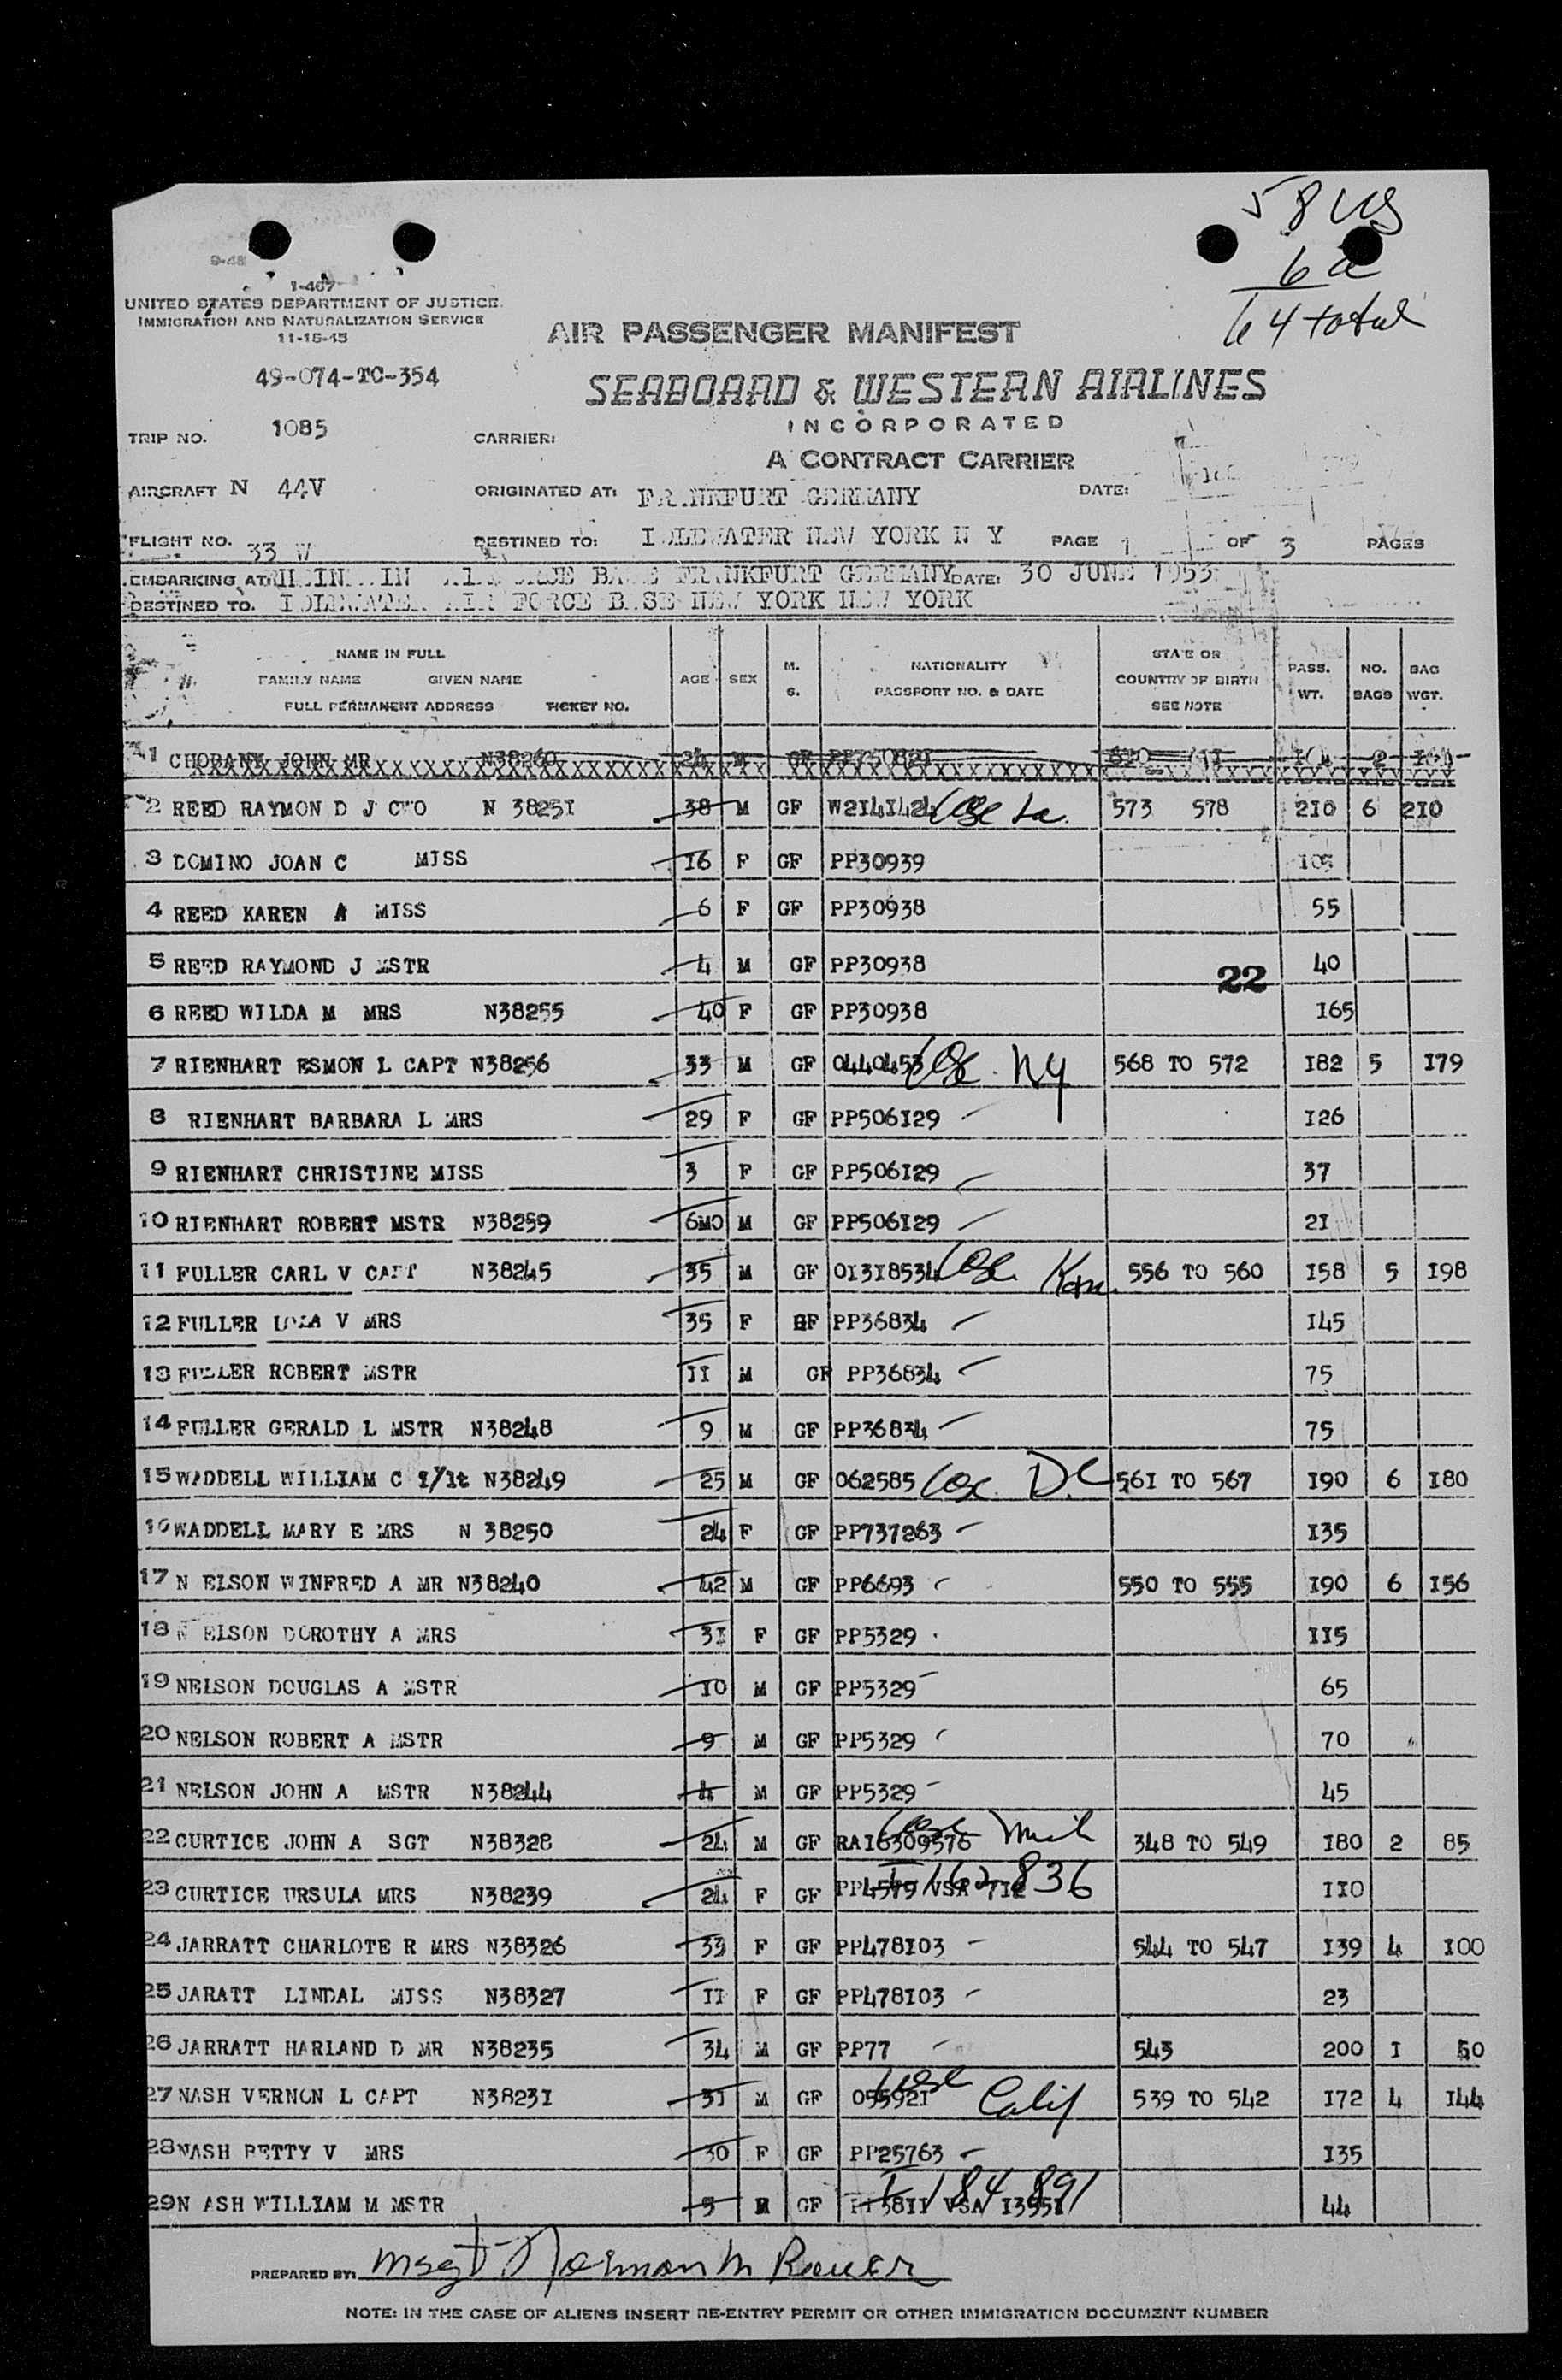 58 US
6 a
64 total
9-48
1-467
UNITED STATES DEPARTMENT OF JUSTICE
IMMIGRATION AND NATURALIZATION SERVICE
11-15-45
AIR PASSENGER MANIFEST
49-074-TC-354
SEABOARD & WESTERN AIRLINES
INCORPORATED
TRIP NO. 1085 CARRIER:
A CONTRACT CARRIER
AIRCRAFT N 44V ORIGINATED AT: FRANKFURT GERMANY DATE:
FLIGHT NO. 33 W DESTINED TO: IDLEWATER NEW YORK N Y PAGE 1 OF 3 PAGES
EMBARKING AT: BASE FRANKFURT GERMANY DATE: 30 JUNE 1953
DESTINED TO. IDLEWATER AIR FORCE BASE NEW YORK NEW YORK
NAME IN FULL
FAMILY NAME GIVEN NAME
FULL PERMANENT ADDRESS TICKET NO.
AGE SEX M. S. NATIONALITY PASSPORT NO. & DATE STATE OR COUNTRY OF BIRTH SEE NOTE PASS. WT. NO. BAGS BAG WGT.
1 CHOBANY JOHN MR N38260 M GF 2
2 REED RAYMON D J CWO N 38251 38 M GF W2141424 La. 573 578 210 6 210
3 DOMINO JOAN C MISS 16 F GF PP30939 105
4 REED KAREN A MISS 6 F GF PP30938 55
5 REED RAYMOND J MSTR 4 M GF PP30938 22 40
6 REED WILDA M MRS N38255 40 F GF PP30938 165
7 RIENHART ESMON L CAPT N38256 33 M GF 0440453 NY 568 TO 572 182 5 179
8 RIENHART BARBARA L MRS 29 F GF PP506129 126
9 RIENHART CHRISTINE MISS 3 F GF PP506129 37
10 RIENHART ROBERT MSTR N38259 6MO M GF PP506129 21
11 FULLER CARL V CAPT N38245 35 M GF 01318534 Kan. 556 TO 560 158 5 198
12 FULLER V MRS 35 F GF PP36834 145
13 FULLER ROBERT MSTR 11 M GF PP36834 75
14 FULLER GERALD L MSTR N38248 9 M GF PP36834 75
15 WADDELL WILLIAM C 1/lt N38249 25 M GF 062585 D.C 561 TO 567 190 6 180
16 WADDELL MARY E MRS N 38250 24 F GF PP737263 135
17 N ELSON WINFRED A MR N38240 42 M GF PP6693 550 TO 555 190 6 156
18 N ELSON DOROTHY A MRS 31 F GF PP5329 115
19 NELSON DOUGLAS A MSTR 10 M GF PP5329 65
20 NELSON ROBERT A MSTR 9 M GF PP5329 70
21 NELSON JOHN A MSTR N38244 4 M GF PP5329 45
22 CURTICE JOHN A SGT N38328 24 M GF RA16309576 Mich 348 TO 549 180 2 85
23 CURTICE URSULA MRS N38239 24 F GF PP4579 VSA 712 I 162836 110
24 JARRATT CHARLOTE R MRS N38326 33 F GF PP478103 544 TO 547 139 4 100
25 JARATT LINDAL MISS N38327 11 F GF PP478103 23
26 JARRATT HARLAND D MR N38235 34 M GF PP77 543 200 1 50
27 NASH VERNON L CAPT N38231 31 M GF 055921 Calif 539 TO 542 172 4 144
28 NASH BETTY V MRS 30 F GF PP25763 135
29 N ASH WILLIAM M MSTR 5 M GF PP3811 VSA 13551 I 184891 44
PREPARED BY: Msgt Norman M
NOTE: IN THE CASE OF ALIENS INSERT RE-ENTRY PERMIT OR OTHER IMMIGRATION DOCUMENT NUMBER